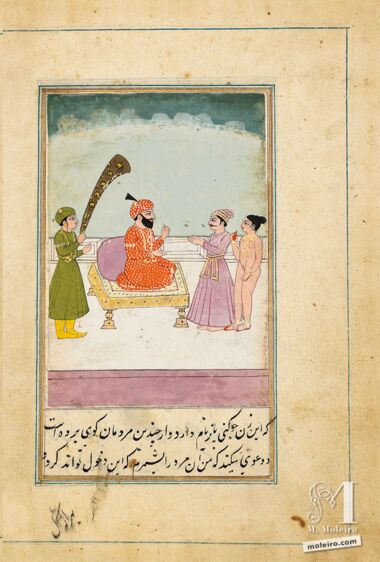 که این زن جوکنی باز نام دارد و از چندین مردمان کوی برده است
و دعوی میکند که من آن مرد را که این دخول تواند کرد و
M. Moleiro
moleiro.com